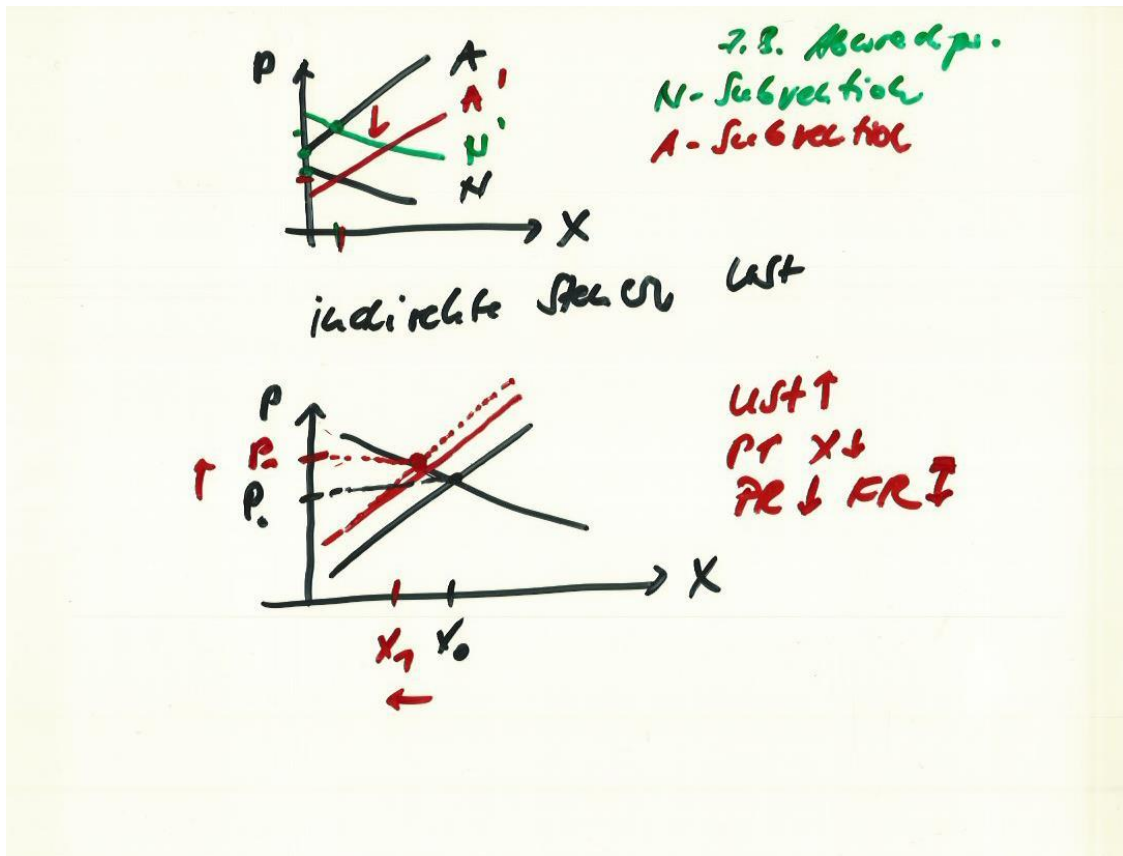 P
A
A'
N'
N
X
z.B. Abwrackpr.
N-Subvention
A-Subvention
indirekte Steuern USt
P
P₁
P₀
X
X₁ X₀
USt ↑
P↑ X↓
PR ↓ KR ↕